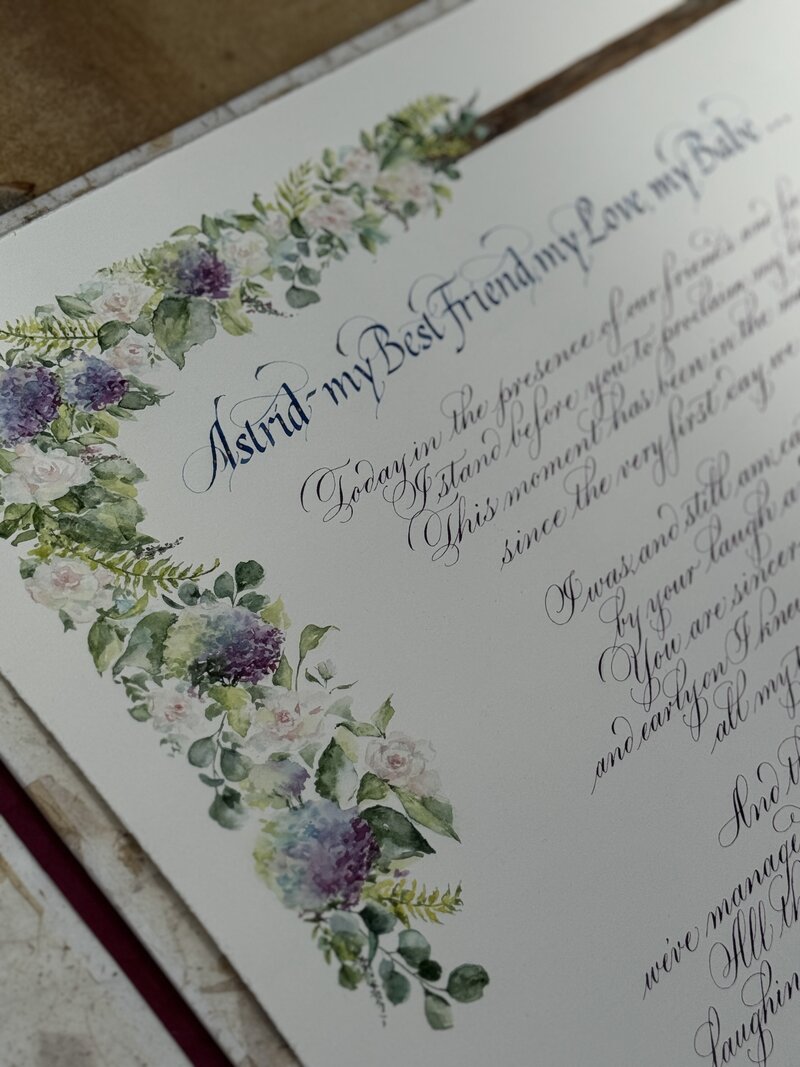 Astrid - my Best Friend, my Love, my Babe ...
Today in the presence of our friends and
I stand before you to proclaim my
This moment has been in the
since the very first day we
I was, and still am,
by your laugh
You are
and early on I knew
all my
And
we've
All